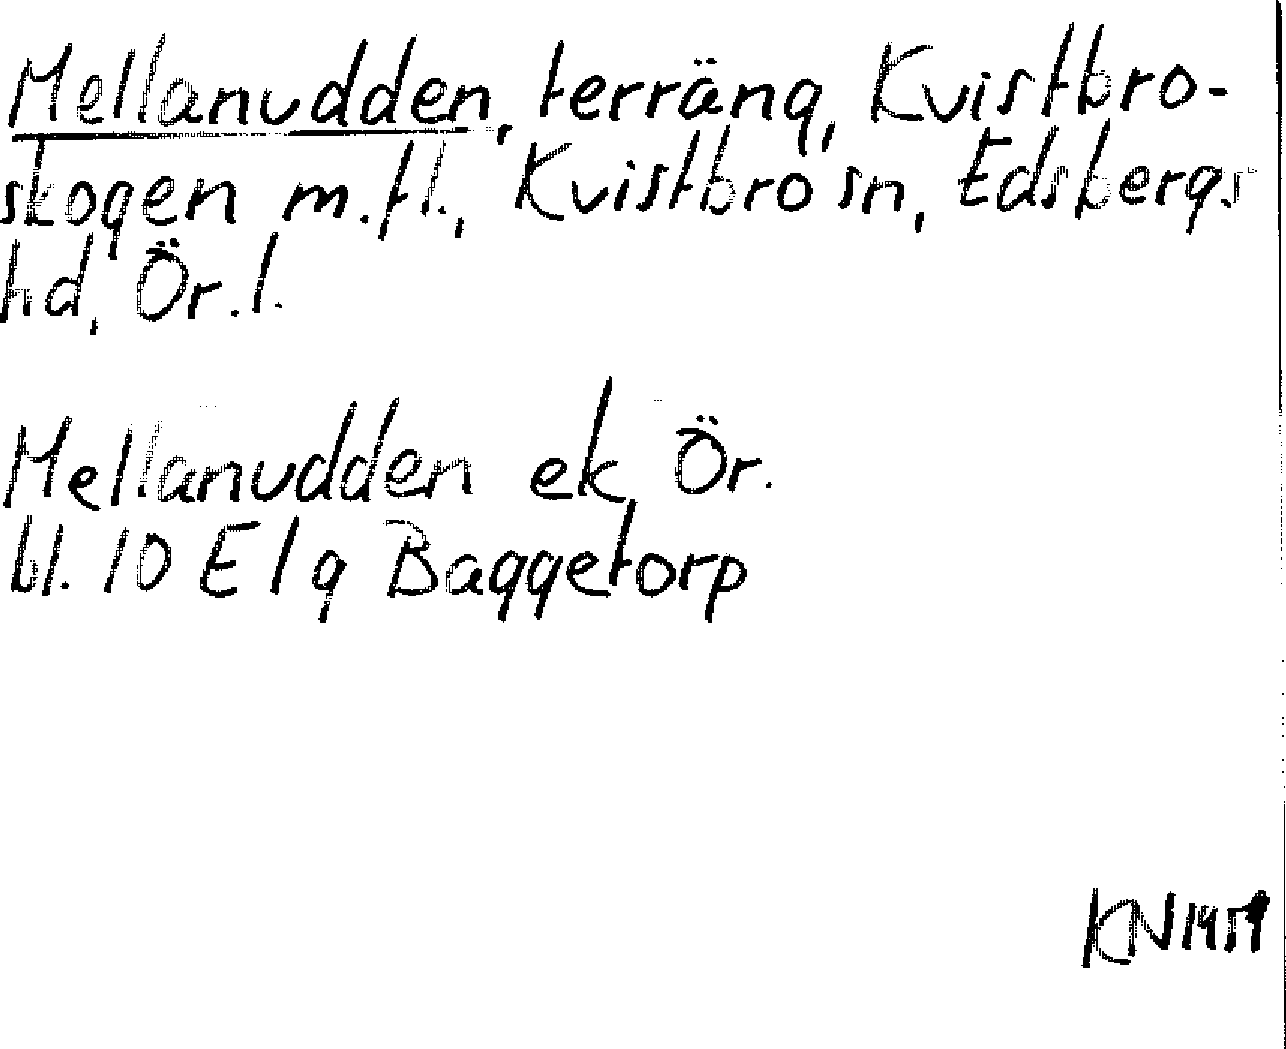 Mellanudden, terräng, Kvistbro-
skogen m.fl., Kvistbro sn, Edsbergs
hd, Ör.l.
Mellanudden ek, Ör.
bl. 10 E 1 g Baggetorp
KN